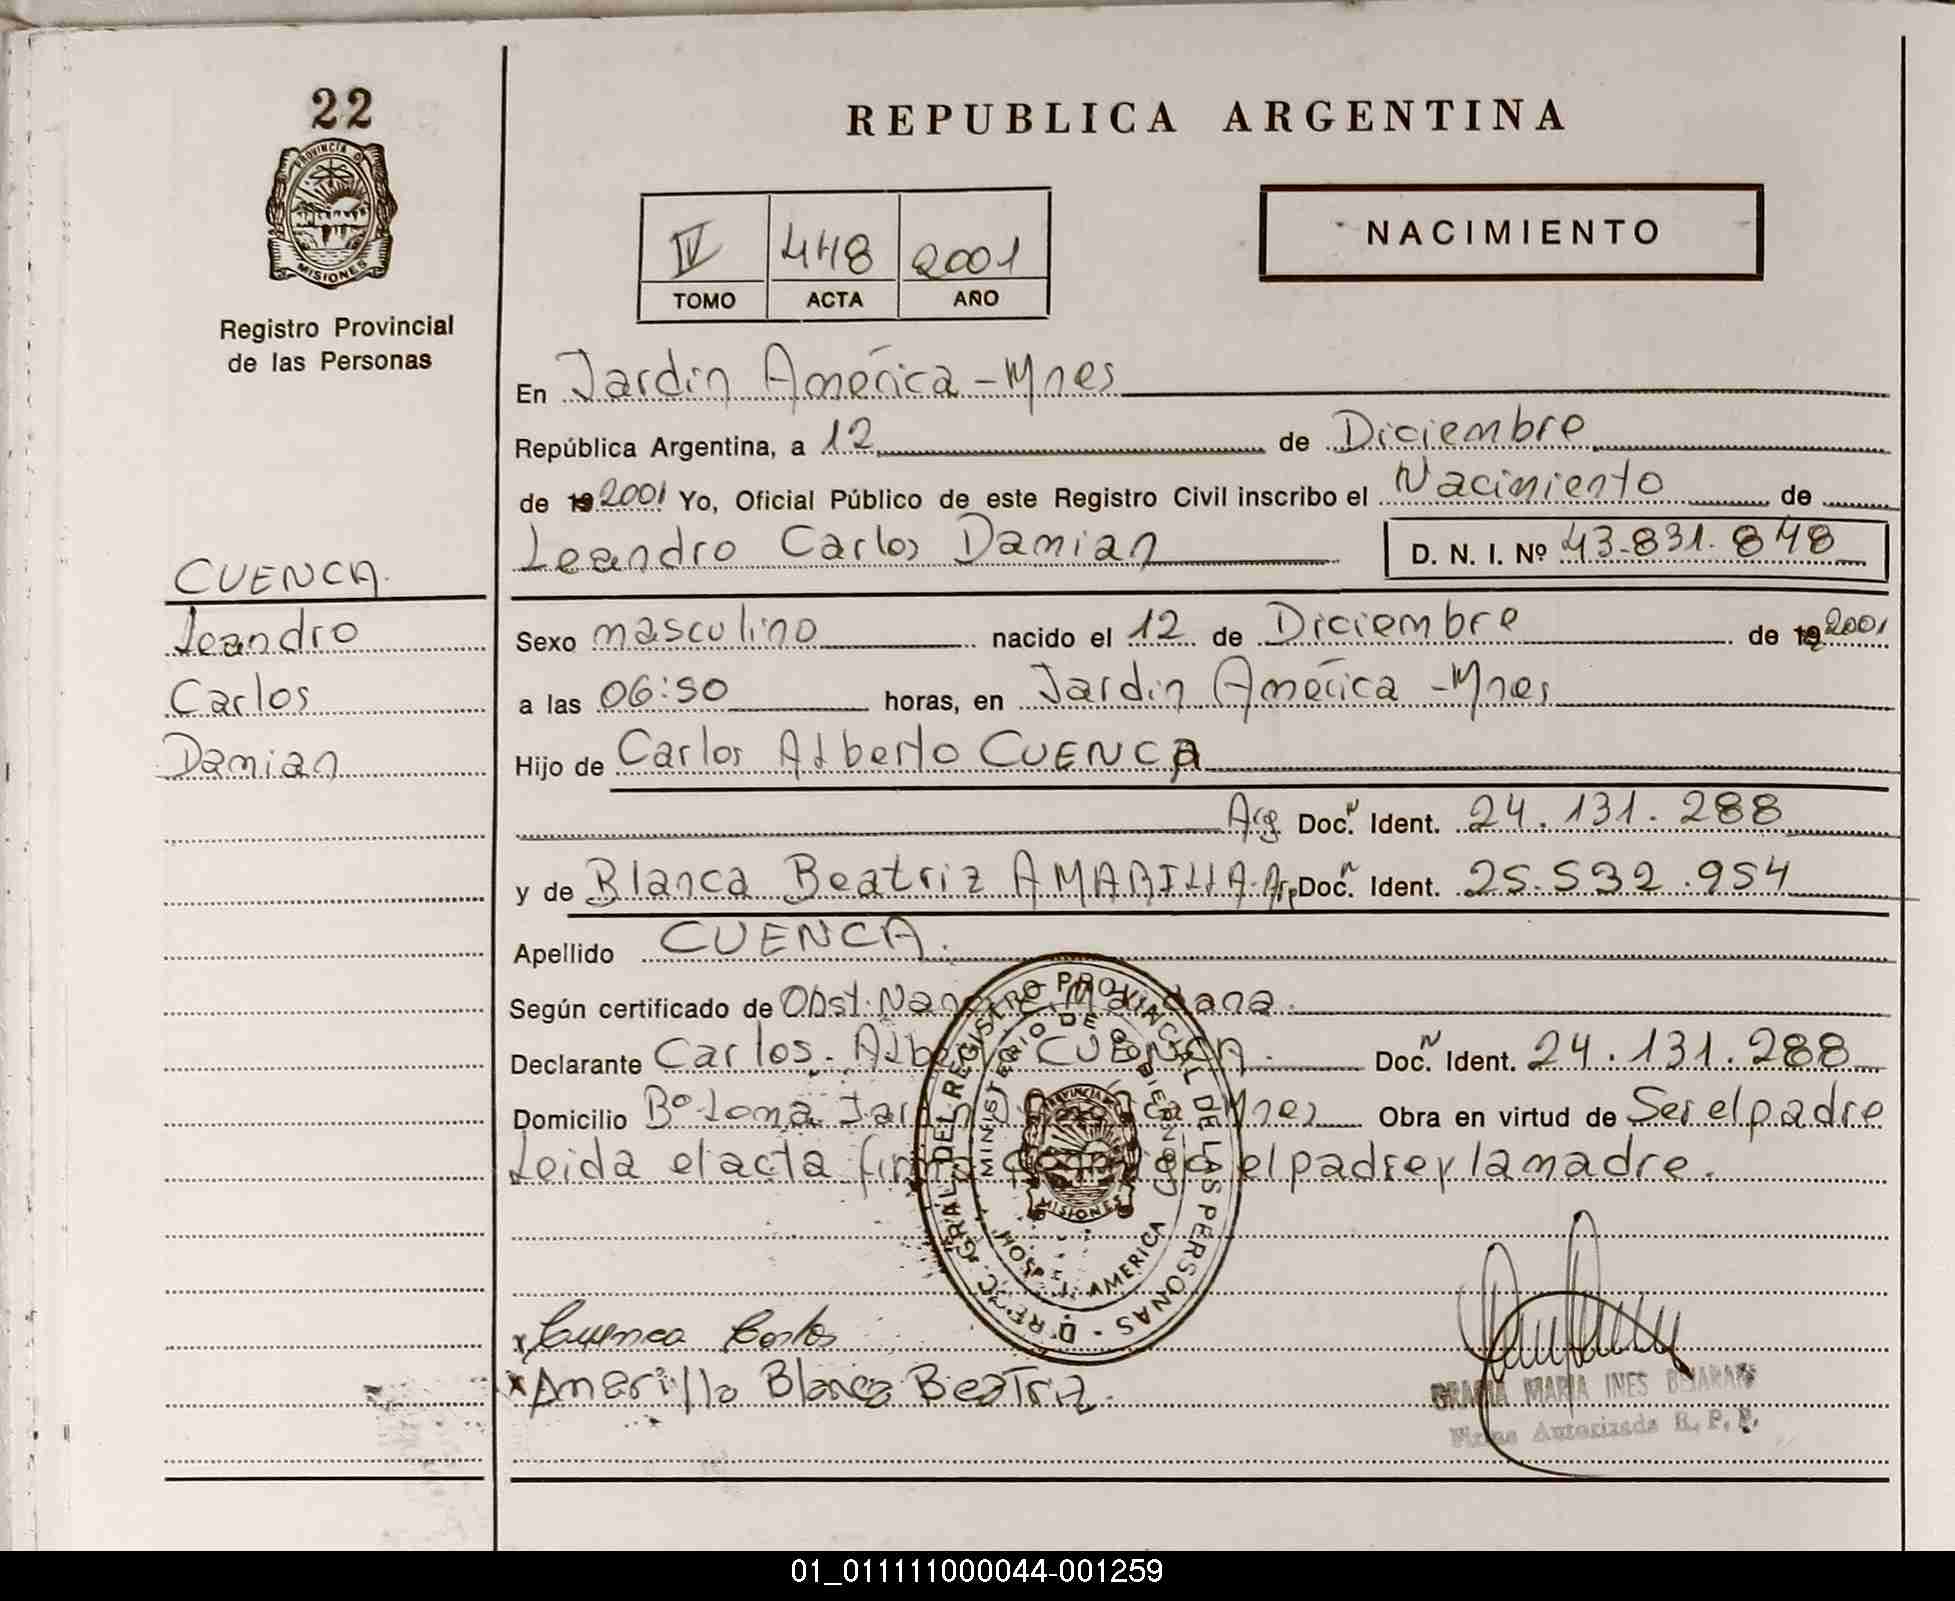 22
PROVINCIA DE
MISIONES
Registro Provincial
de las Personas
REPUBLICA ARGENTINA
IV 448 2001
TOMO ACTA AÑO
NACIMIENTO
En Jardín América - Mnes
República Argentina, a 12 de Diciembre
de 19 2001 Yo, Oficial Público de este Registro Civil inscribo el Nacimiento de
Leandro Carlos Damian D. N. I. Nº 43.831.848
CUENCA.
Leandro
Carlos
Damian
Sexo masculino nacido el 12 de Diciembre de 19 2001
a las 06:50 horas, en Jardin América - Mnes
Hijo de Carlos Alberto CUENCA
Arg Doc. Ident. 24.131.288
y de Blanca Beatriz AMARILLA - Arg Doc. Ident. 25.532.954
Apellido CUENCA.
Según certificado de Obst.
Declarante Carlos Alberto CUENCA. Doc. Ident. 24.131.288
Domicilio Bº Loma Jardín América Mnes Obra en virtud de Ser el padre
Leida el acta firma conmigo el padre y la madre.
DIREC. GRAL. DEL REGISTRO PROVINCIAL DE LAS PERSONAS
MINISTERIO DE GOBIERNO
HOSP. J. AMERICA
PROVINCIA DE
MISIONES
x Cuenca Carlos
x Amarilla Blanca Beatriz.
GRACIA MARIA INES BEJARANO
Firma Autorizada R. P. P.
01_011111000044-001259